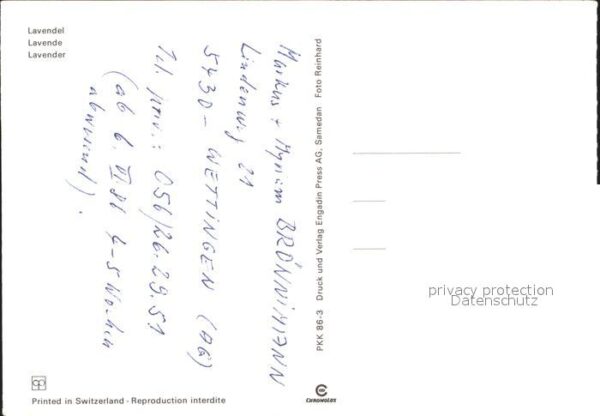 Lavendel
Lavende
Lavender
Markus + Myriam BRÖNNIMANN
Lindenweg 21
5430 - WETTINGEN (AG)
Tel. priv.: 056/26.29.51
(ab 6. VI. 86 4-5 Wochen
abwesend).
PKK 86-3 Druck und Verlag Engadin Press AG, Samedan Foto Reinhard
privacy protection
Datenschutz
cp
Printed in Switzerland - Reproduction interdite
CHROMOLUX